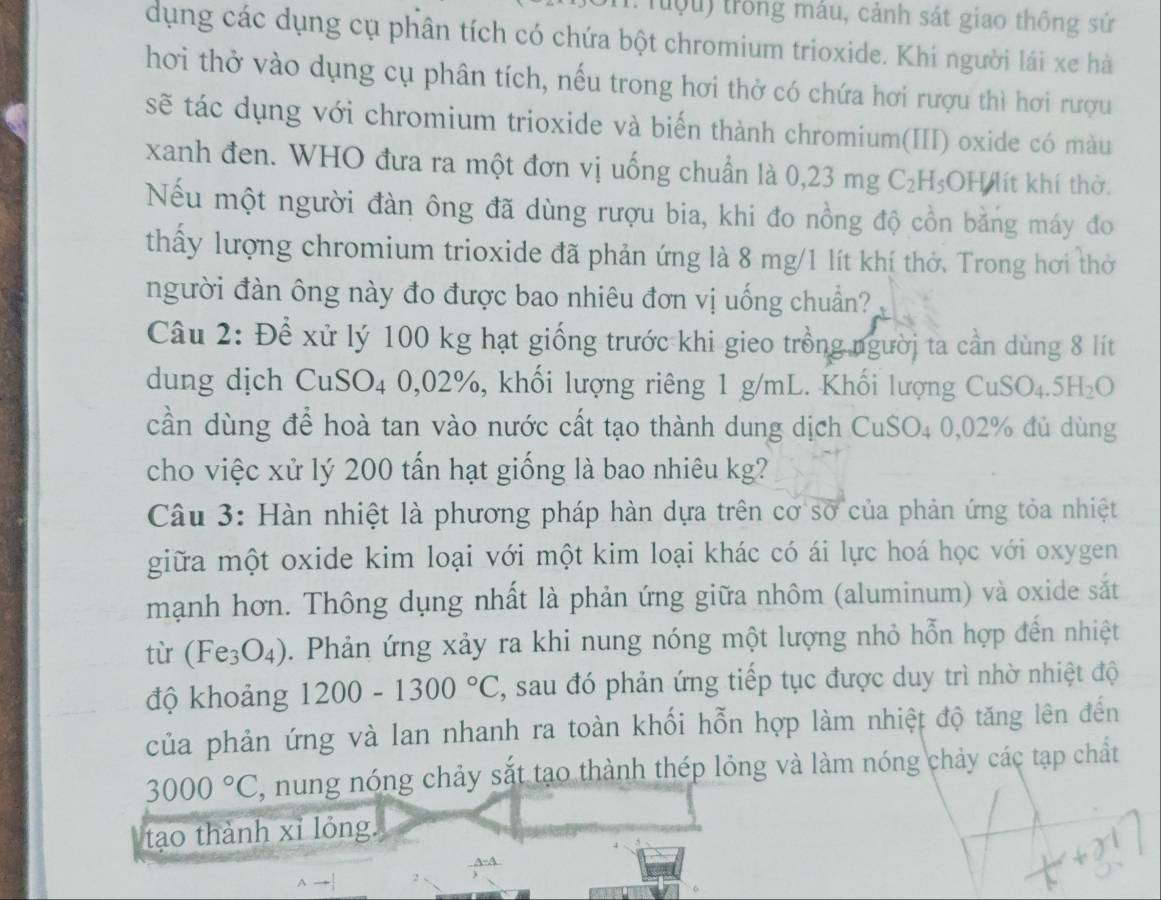 rượu) trong máu, cảnh sát giao thông sử
dụng các dụng cụ phân tích có chứa bột chromium trioxide. Khi người lái xe hà
hơi thở vào dụng cụ phân tích, nếu trong hơi thở có chứa hơi rượu thì hơi rượu
sẽ tác dụng với chromium trioxide và biến thành chromium(III) oxide có màu
xanh đen. WHO đưa ra một đơn vị uống chuẩn là 0,23 mg C₂H₅OH/lít khí thở.
Nếu một người đàn ông đã dùng rượu bia, khi đo nồng độ cồn bằng máy đo
thấy lượng chromium trioxide đã phản ứng là 8 mg/1 lít khí thở. Trong hơi thở
người đàn ông này đo được bao nhiêu đơn vị uống chuẩn?
Câu 2: Để xử lý 100 kg hạt giống trước khi gieo trồng người ta cần dùng 8 lít
dung dịch CuSO₄ 0,02%, khối lượng riêng 1 g/mL. Khối lượng CuSO₄.5H₂O
cần dùng để hoà tan vào nước cất tạo thành dung dịch CuSO₄ 0,02% đủ dùng
cho việc xử lý 200 tấn hạt giống là bao nhiêu kg?
Câu 3: Hàn nhiệt là phương pháp hàn dựa trên cơ sở của phản ứng tỏa nhiệt
giữa một oxide kim loại với một kim loại khác có ái lực hoá học với oxygen
mạnh hơn. Thông dụng nhất là phản ứng giữa nhôm (aluminum) và oxide sắt
từ (Fe₃O₄). Phản ứng xảy ra khi nung nóng một lượng nhỏ hỗn hợp đến nhiệt
độ khoảng 1200 - 1300 °C, sau đó phản ứng tiếp tục được duy trì nhờ nhiệt độ
của phản ứng và lan nhanh ra toàn khối hỗn hợp làm nhiệt độ tăng lên đến
3000 °C, nung nóng chảy sắt tạo thành thép lỏng và làm nóng chảy các tạp chất
tạo thành xỉ lỏng.
A-A
A